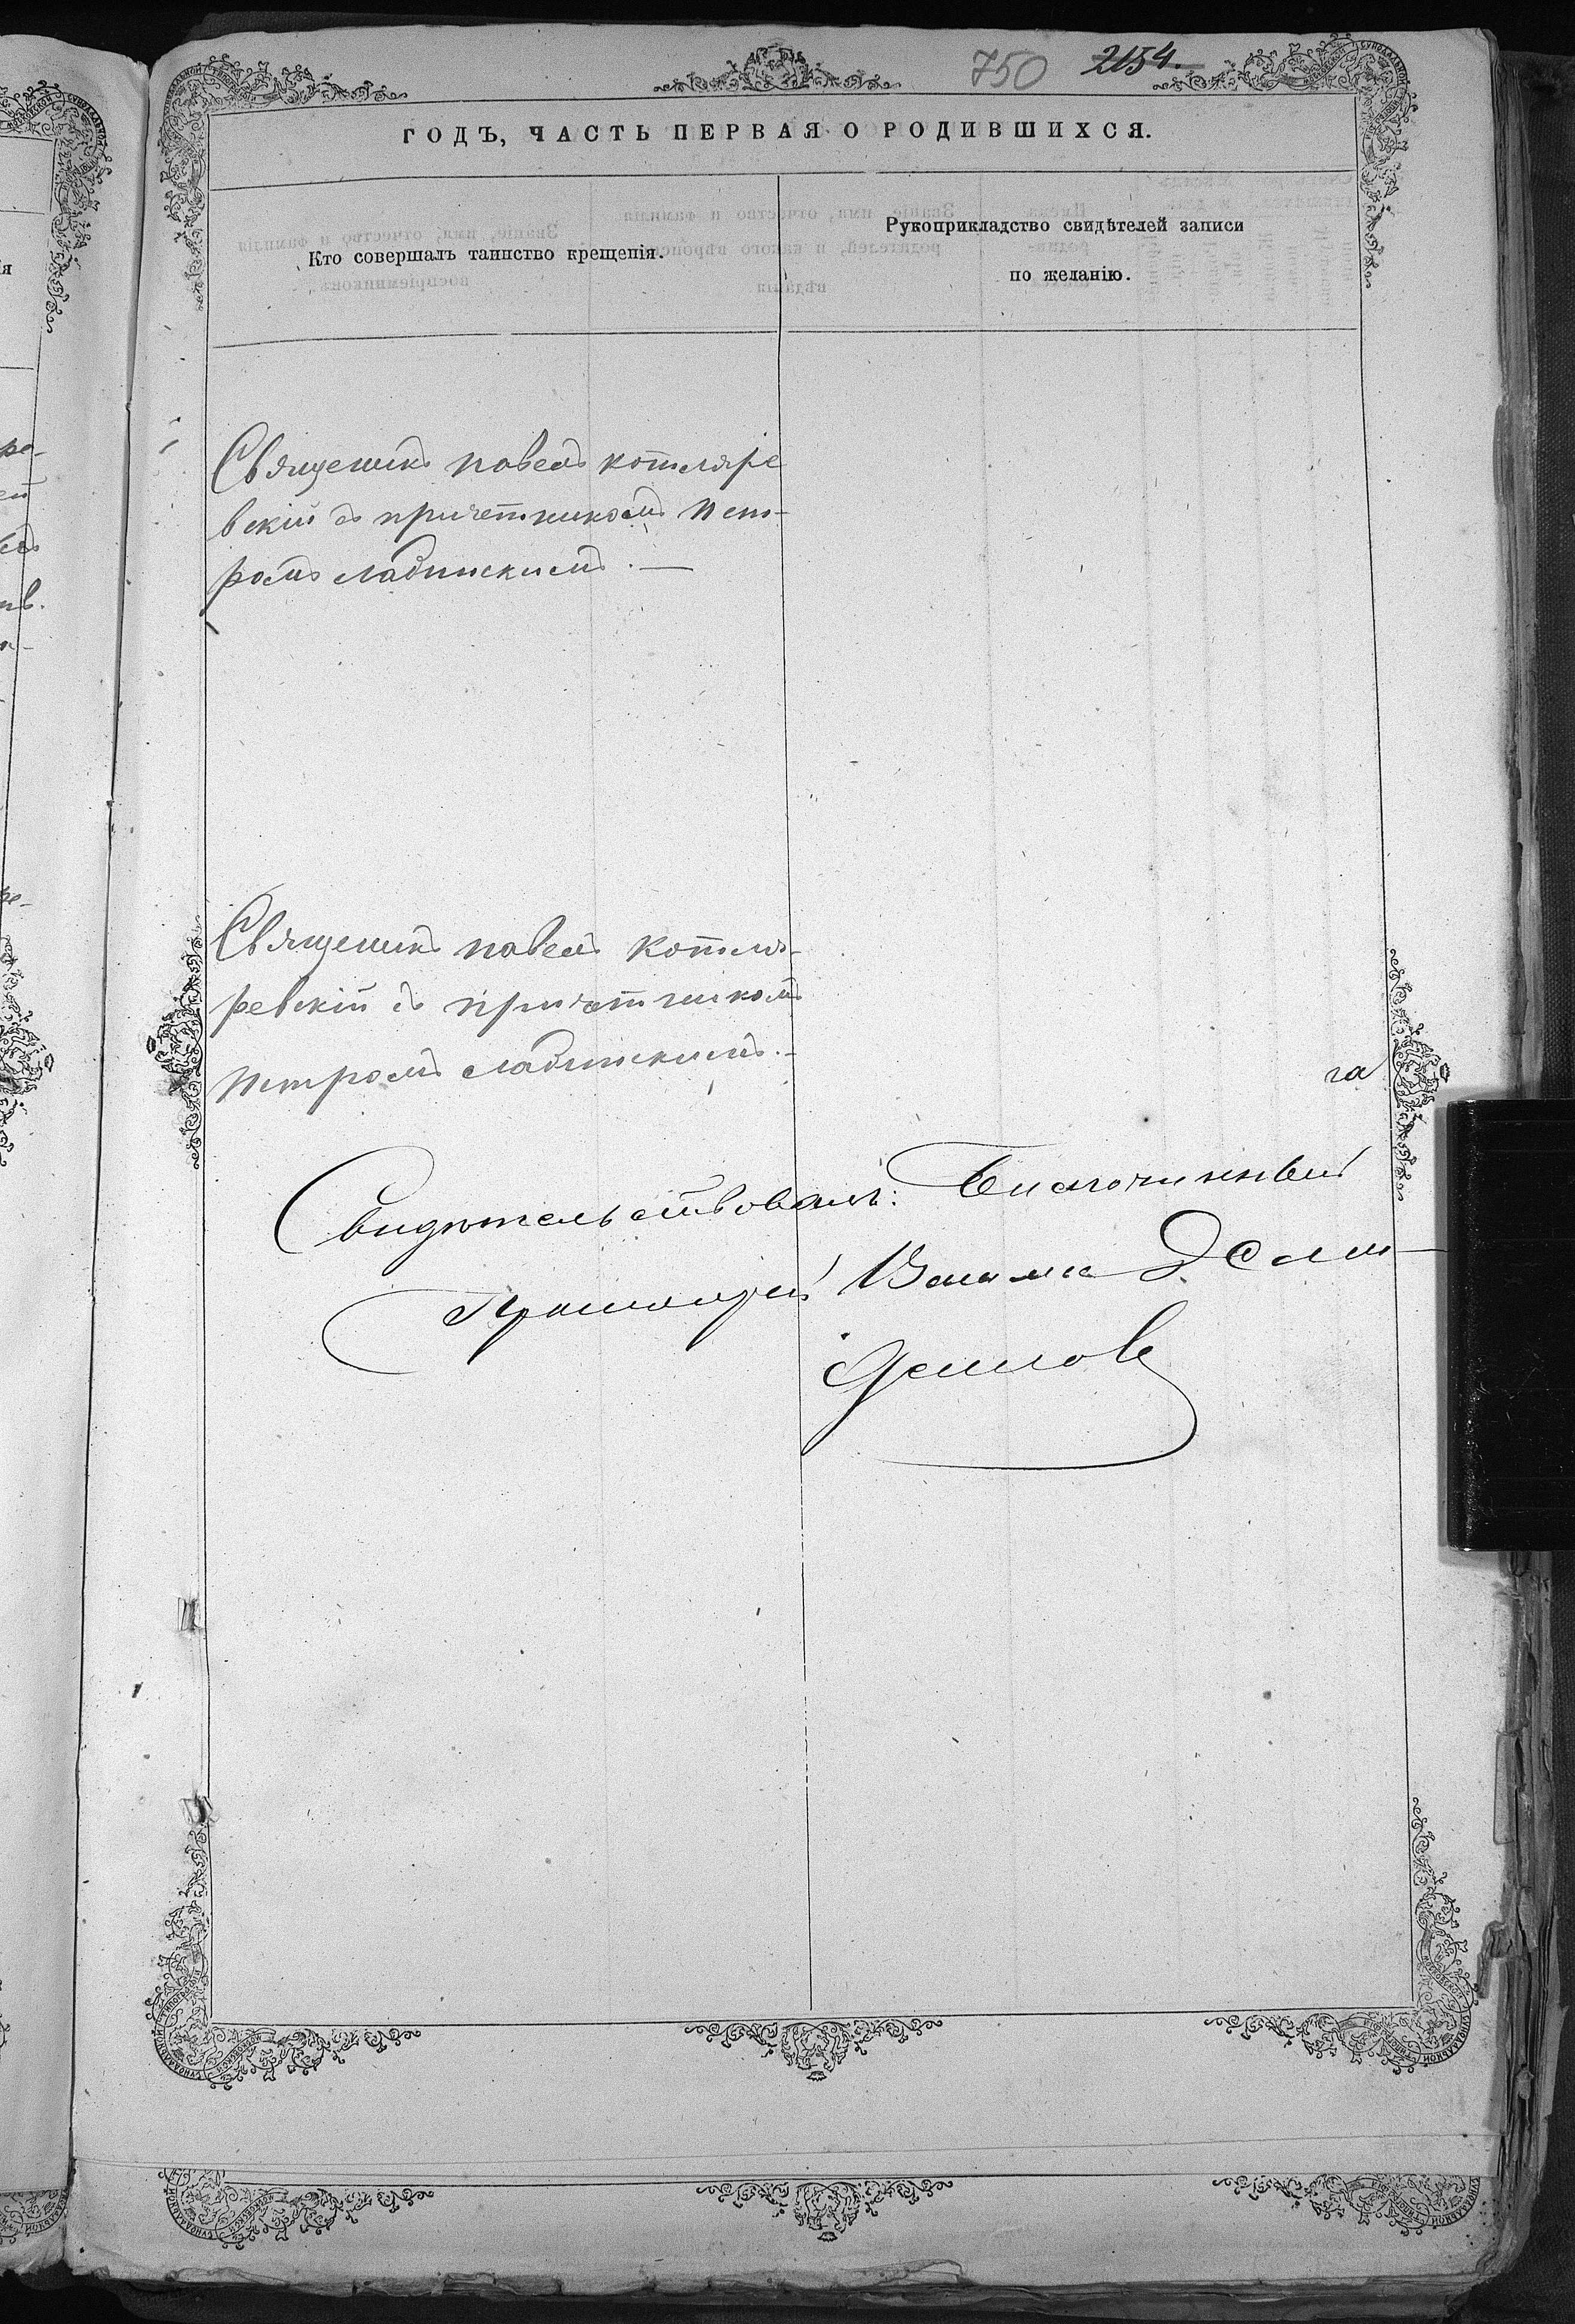 750 2154.
ГОДЪ, ЧАСТЬ ПЕРВАЯ О РОДИВШИХСЯ.
Кто совершалъ таинство крещенія.
Рукоприкладство свидѣтелей записи
по желанію.
Священикъ павелъ котляре
вскій съ причетникомъ пет-
ромъ слабинскимъ. —
Священикъ павелъ котля-
ревскій съ причетникомъ
петромъ слабинскимъ. —
га
Свидѣтельствовалъ: Благочинный